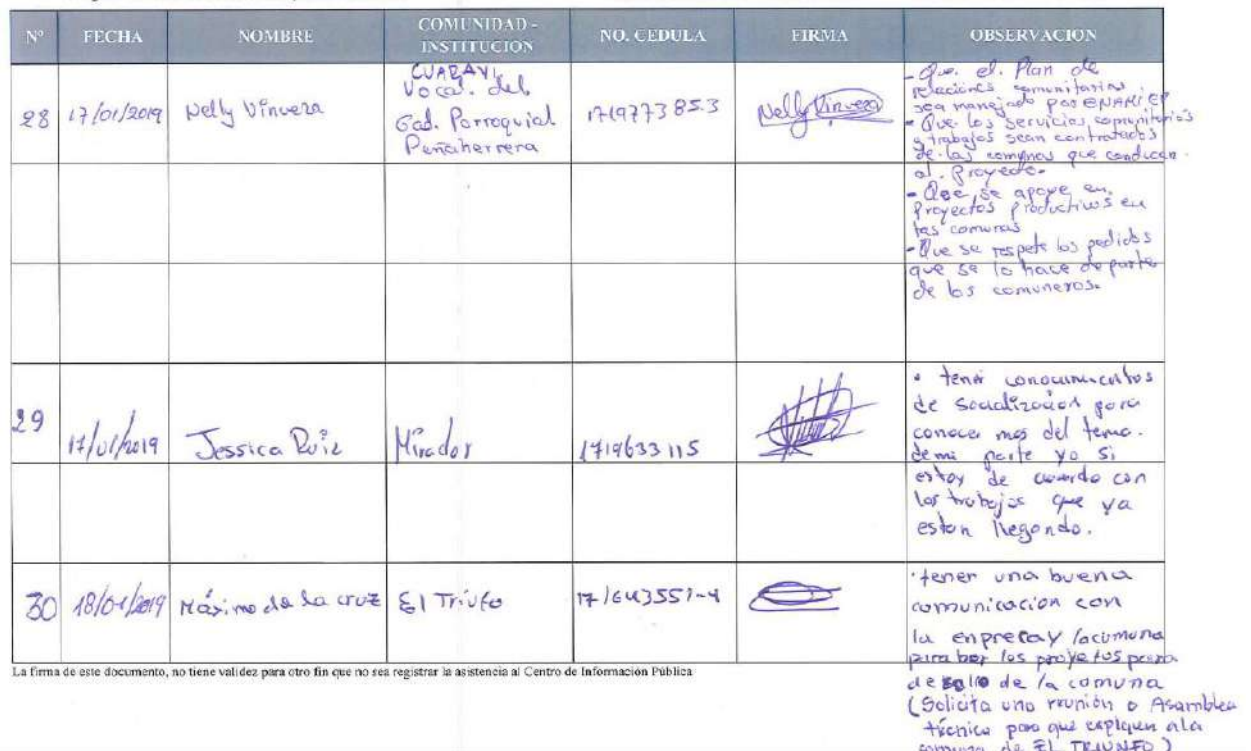 N° FECHA NOMBRE COMUNIDAD - INSTITUCIÓN NO. CEDULA FIRMA OBSERVACION
28 17/01/2019 Nelly Vinueza
CUARAVI
Vocal. del
Gad. Parroquial
Peñaherrera
171977385.3
Nelly Vinueza
- Que. el. Plan de
relaciones comunitarias
sea manejado por ENAMI EP
- Que los servicios comunitarios
y trabajos sean contratados
de las comunas que conducen
al. Proyecto.
- Que se apoye en
Proyectos productivos en
las comunas
- Que se respete los pedidos
que se lo hace de parte
de los comuneros.
29 17/01/2019 Jessica Ruiz Mirador 1719633115
• tener conocimientos
de socialización para
conocer mas del tema.
demi parte yo si
estoy de acuerdo con
los trabajos que ya
estan llegando.
30 18/01/2019 Máximo de la cruz El Triufo 171643551-4
· tener una buena
comunicacion con
la enpresa y lacomuna
para los proyetos para
de la comuna
(Solicita una reunión o Asamblea
técnica para que expliquen ala
comuna de EL TRIUNFO)
La firma de este documento, no tiene validez para otro fin que no sea registrar la asistencia al Centro de Información Pública